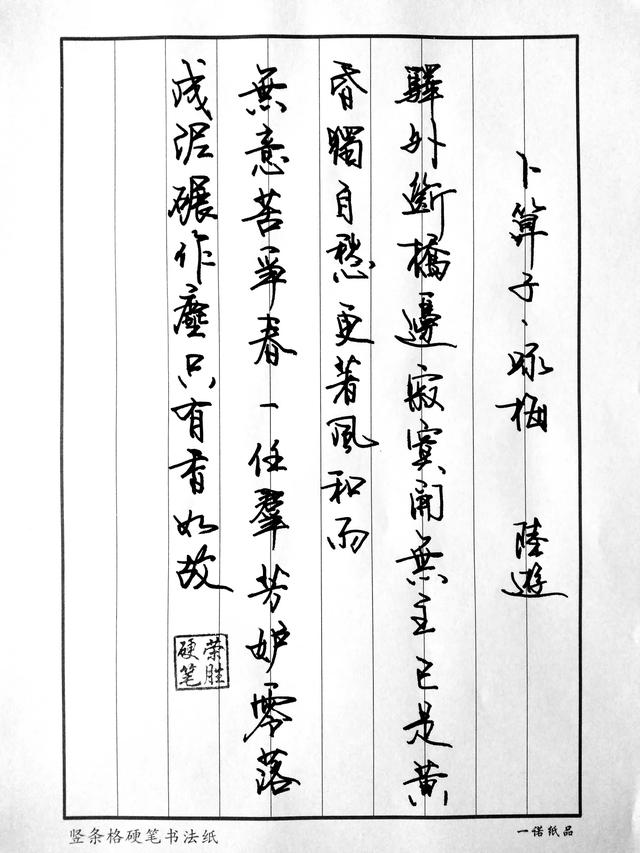 卜算子、咏梅 陸遊
驛外斷橋邊寂寞開無主已是黄
昏獨自愁更著風和雨
無意苦爭春一任羣芳妒零落
成泥碾作塵只有香如故
荣胜
硬笔
竖条格硬笔书法纸
一诺纸品